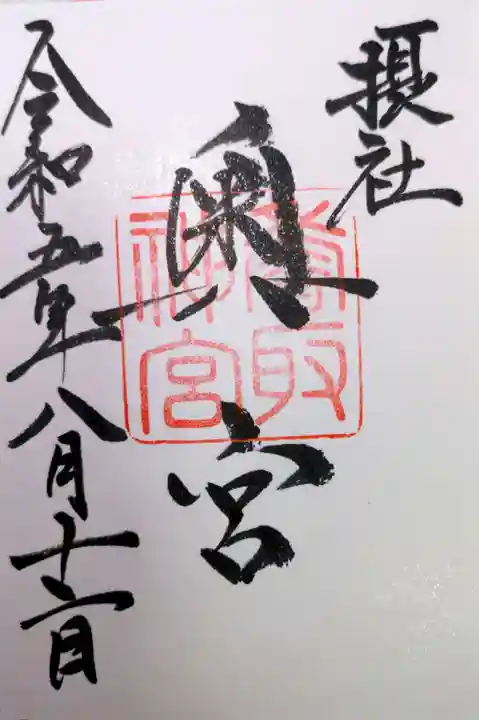 摂社
奥宮
香取
神宮
令和五年八月十二日